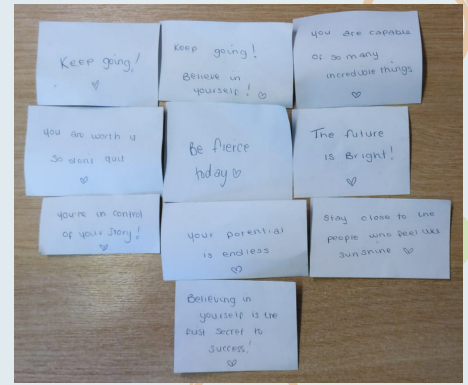 Keep going!
Keep going!
Believe in
yourself!
you are capable
of so many
incredible things
you are worth it
so dont quit
Be fierce
today
The future
is Bright!
you're in control
of your story!
your potential
is endless
Stay close to the
people who feel like
sunshine
Believing in
yourself is the
first secret to
success!